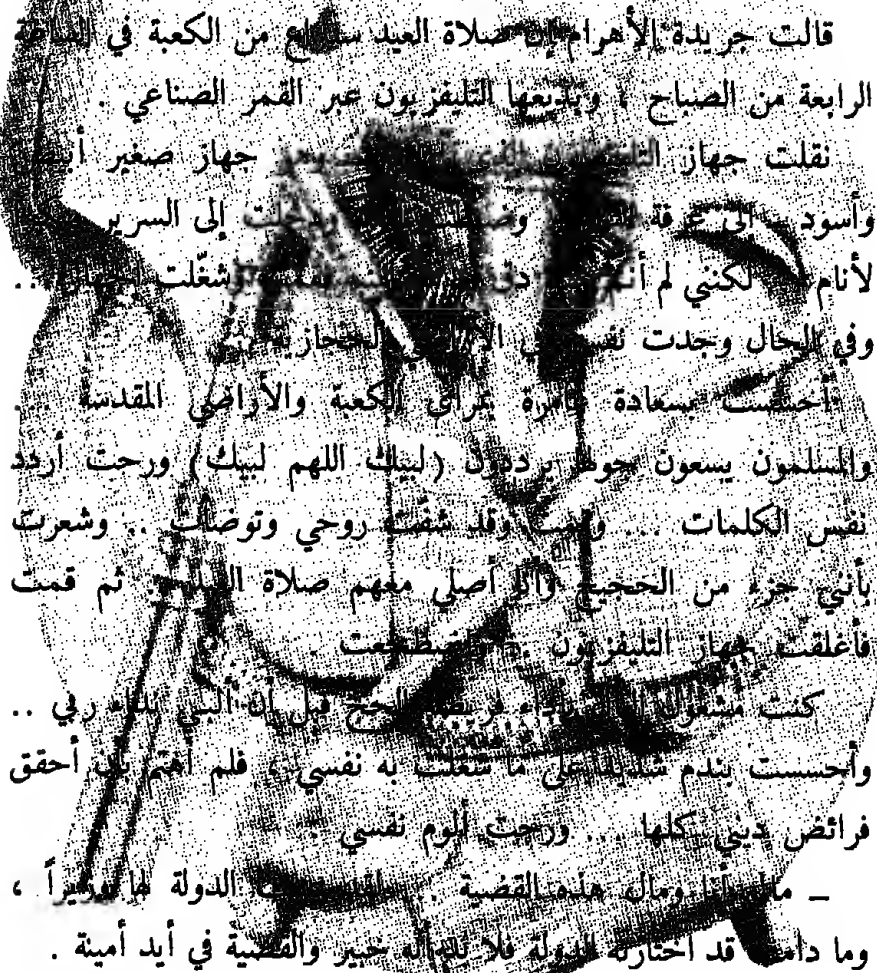 قالت جريدة الأهرام إن صلاة العيد ستذاع من الكعبة في الساعة
الرابعة من الصباح ، ويذيعها التليفزيون عبر القمر الصناعي .
نقلت جهاز جهاز صغير أبيض
وأسود إلى غرفة إلى السرير
لأنام لكنني لم أنم وشغّلت ..
وفي الحال وجدت
أحسست بسعادة غامرة بمرأى الكعبة والأراضي المقدسة ...
والمسلمون يسعون حولها يرددون (لبيك اللهم لبيك) ورحت أردد
نفس الكلمات ... وقمت وقد شفّت روحي وتوضأت .. وشعرت
بأنني جزء من الحجيج وأنا أصلي معهم صلاة العيد .. ثم قمت
فأغلقت جهاز التليفزيون .. واضطجعت .
كنت الحج قبل أن ألبي نداء ربي ..
وأحسست بندم شديد على ما شغلت به نفسي ، فلم أهتم بأن أحقق
فرائض ديني كلها ... ورحت ألوم نفسي :
ــ مالي أنا ومال هذه القضية .. الدولة لها وزيراً ،
وما دامت قد اختارته الدولة فلا بد أنه خبير والقضية في أيد أمينة .